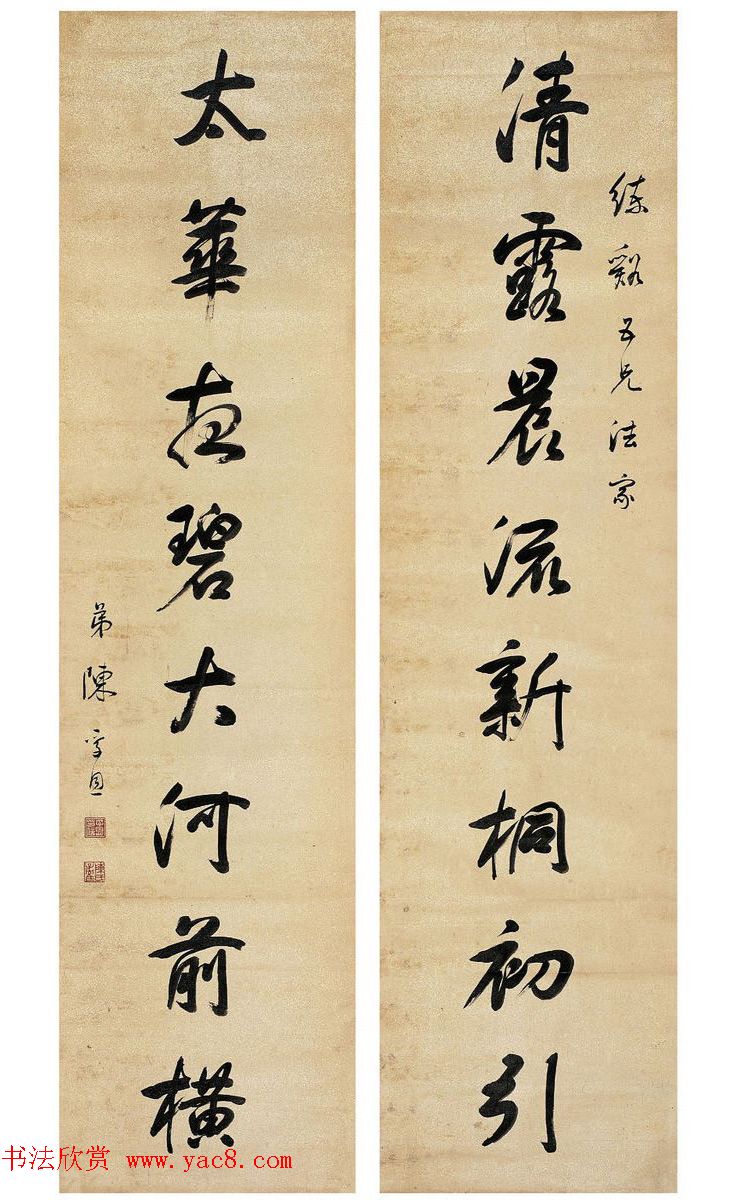 練谿五兄法家
清露晨流新桐初引
太華夜碧大河前橫
弟陳孚恩
书法欣赏 www.yac8.com